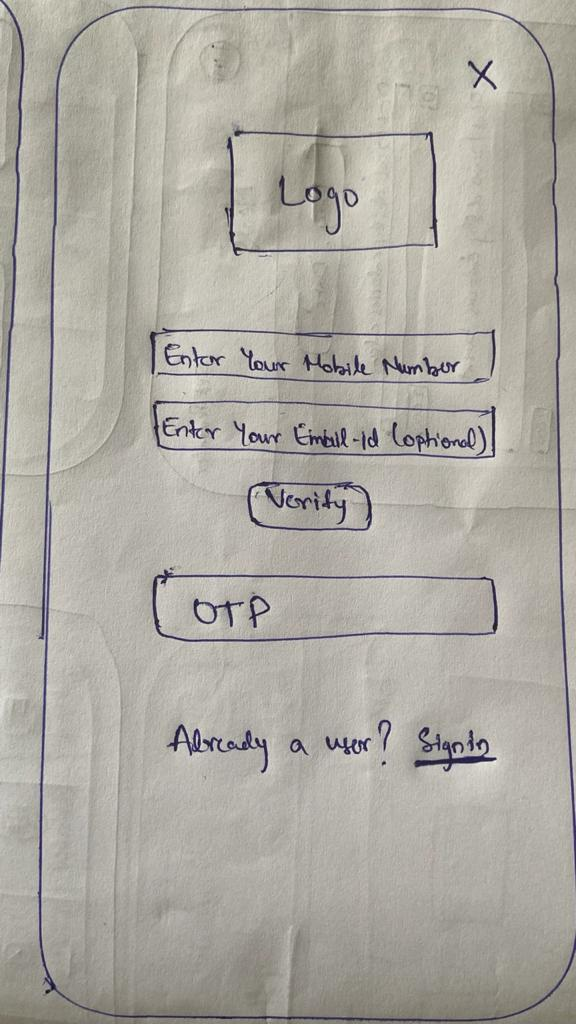 X
Logo
Enter Your Mobile Number
Enter Your Email-id (optional)
Verify
OTP
Already a user? Signin